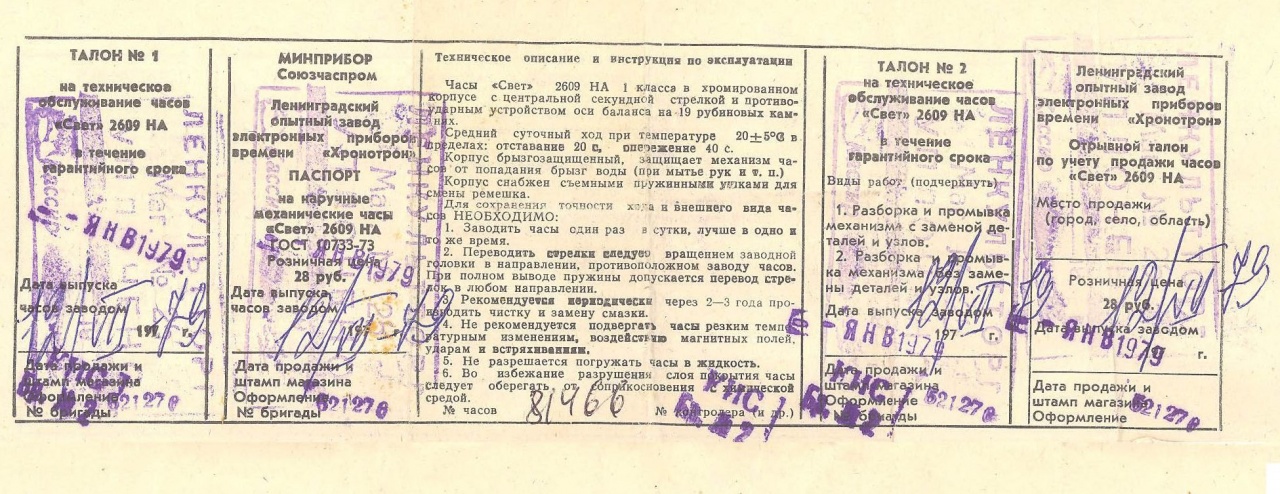 ТАЛОН № 1
на техническое
обслуживание часов
«Свет» 2609 НА
в течение
гарантийного срока
ЯНВ 1979
Дата выпуска
часов заводом
197 г.
Дата продажи и
штамп магазина
Оформление
№ бригады
МИНПРИБОР
Союзчаспром
Ленинградский
опытный завод
электронных приборов
времени «Хронотрон»
ПАСПОРТ
на наручные
механические часы
«Свет» 2609 НА
ГОСТ 10733-73
Розничная цена
28 руб.
Дата выпуска
часов заводом
197
Дата продажи и
штамп магазина
Оформление
№ бригады
Техническое описание и инструкция по эксплуатации
Часы «Свет» 2609 НА 1 класса в хромированном
корпусе с центральной секундной стрелкой и противо-
ударным устройством оси баланса на 19 рубиновых кам-
нях.
Средний суточный ход при температуре 20±5°С в
пределах: отставание 20 с, опережение 40 с.
Корпус брызгозащищенный, защищает механизм ча-
сов от попадания брызг воды (при мытье рук и т. п.)
Корпус снабжен съемными пружинными ушками для
смены ремешка.
Для сохранения точности хода и внешнего вида ча-
сов НЕОБХОДИМО:
1. Заводить часы один раз в сутки, лучше в одно и
то же время.
2. Переводить стрелки следует вращением заводной
головки в направлении, противоположном заводу часов.
При полном выводе пружины допускается перевод стре-
лок в любом направлении.
3. Рекомендуется периодически через 2—3 года про-
изводить чистку и замену смазки.
4. Не рекомендуется подвергать часы резким темпе-
ратурным изменениям, воздействию магнитных полей,
ударам и встряхиваниям.
5. Не разрешается погружать часы в жидкость.
6. Во избежание разрушения слоя покрытия часы
следует оберегать от соприкосновения с химической
средой.
№ часов 81466 № контролера (и др.)
ТАЛОН № 2
на техническое
обслуживание часов
«Свет» 2609 НА
в течение
гарантийного срока
Виды работ (подчеркнуть)
1. Разборка и промывка
механизма с заменой де-
талей и узлов.
2. Разборка и промыв-
ка механизма без заме-
ны деталей и узлов.
Дата выпуска заводом
197 г.
ЯНВ 1979
Дата продажи и
штамп магазина
Оформление
№ бригады
Ленинградский
опытный завод
электронных приборов
времени «Хронотрон»
Отрывной талон
по учету продажи часов
«Свет» 2609 НА
Место продажи
(город, село, область)
Розничная цена
28 руб.
Дата выпуска заводом
ЯНВ 1979
Дата продажи и
штамп магазина
Оформление